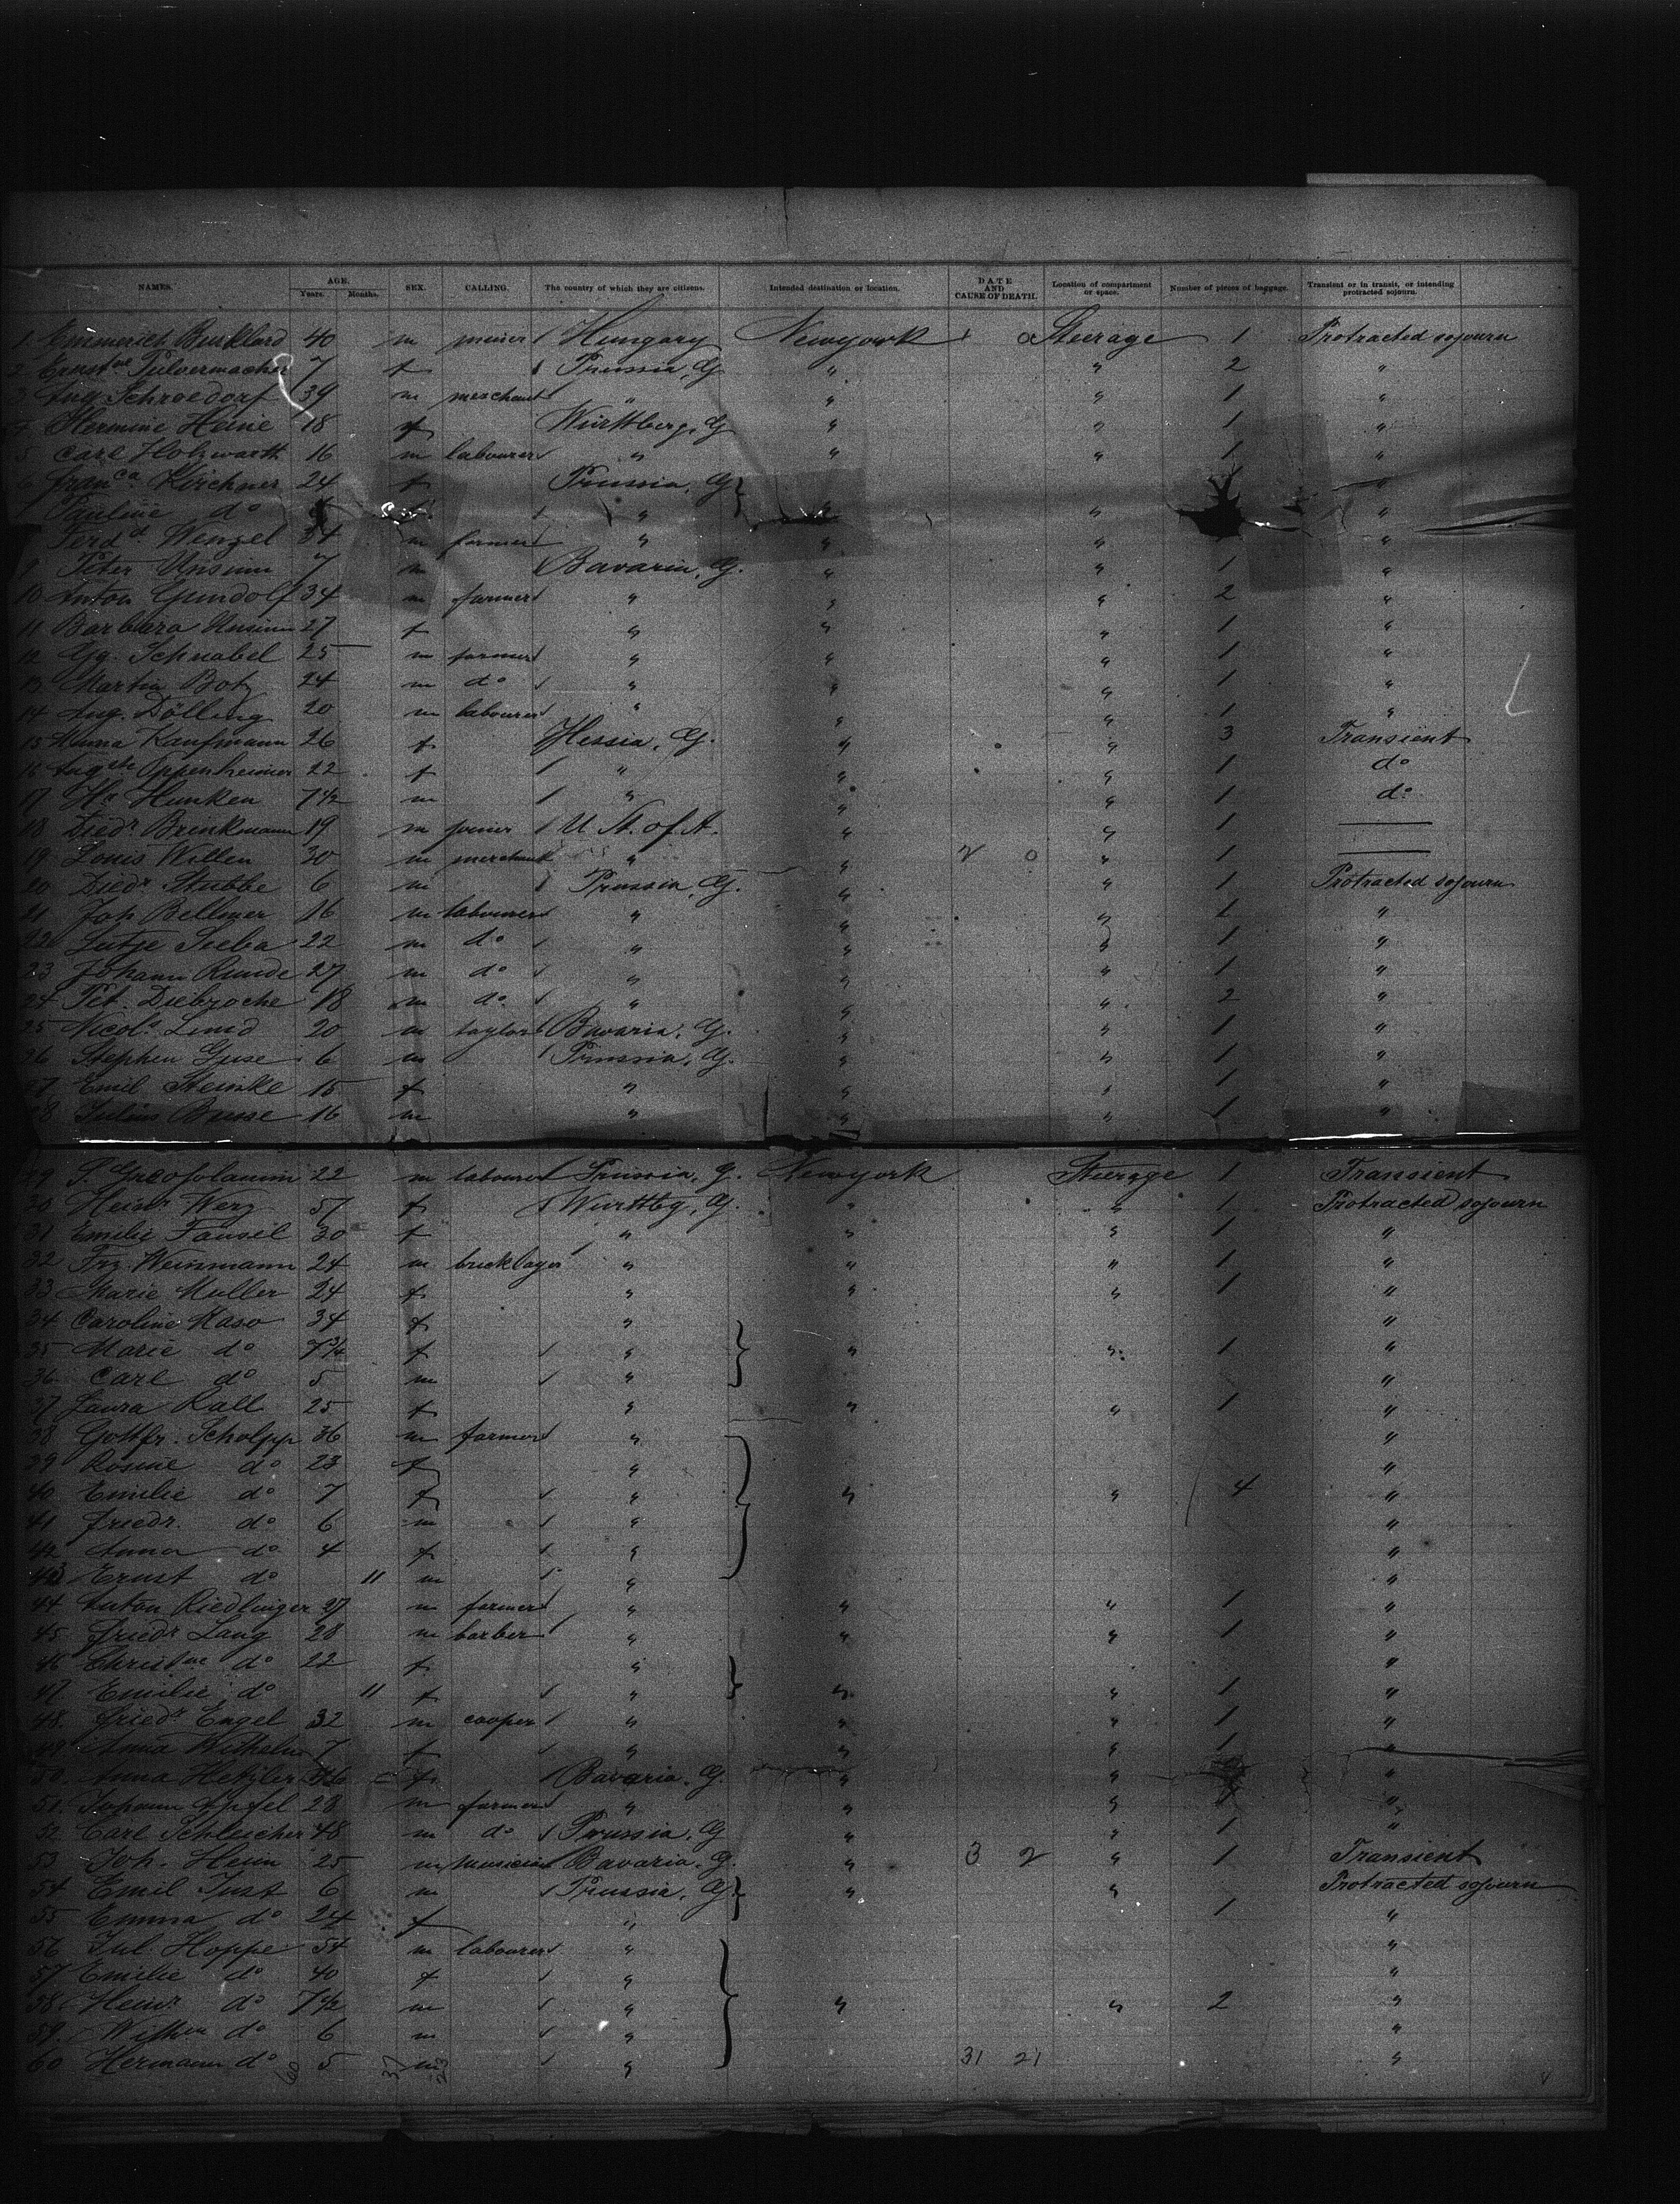 NAMES. AGE. Years. Months. SEX. CALLING. The country of which they are citizens. Intended destination or location. DATE AND CAUSE OF DEATH. Location of compartment or space. Number of pieces of baggage. Transient or in transit, or intending protracted sojourn.
1 Emmerich Burklard 40 m miner Hungary Newyork Steerage 1 Protracted sojourn
2 Ernst ne Pulvermacher 7 f Prussia, G " " 2 "
3 Aug Schroedorf 39 m merchant " " " 1 "
4 Hermine Heine 18 f Württberg, G " " 1 "
5 Carl Holzwarth 16 m labourer " " " 1 "
6 Franca Kirchner 24 f Prussia, G "
7 Pauline do f " " " "
Ferdd Wenzel 34 m farmer " " " "
9 Peter Unsinn 7 m Bavaria, G. " " 1 "
10 Anton Gundolf 34 m farmer " " " 2 "
11 Barbara Unsinn 27 f " " " 1 "
12 Gg. Schnabel 25 m farmer " " " 1 "
13 Martin Botz 24 m do " " " 1 "
14 Aug. Dölling 20 m labourer " " " 1 "
15 Anna Kaufmann 26 f Hessia, G. " " 3 Transient
16 Augste Oppenheimer 22 f " " " 1 do
17 Hr Hunken 7 1/2 m " " " 1 do
18 Diedr Brinkmann 19 m joiner U St. of A. " " 1
19 Louis Willen 30 m merchant " " 2 0 " 1
20 Diedr Stubbe 6 m Prussia, G. " " 1 Protracted sojourn
21 Joh Bellmer 16 m labourer " " " 1 "
22 Lutje Seeba 22 m do " " " 1 "
23 Johann Runde 27 m do " " " 1 "
24 Pet. Diebroche 18 m do " " " 2 "
25 Nicols Lind 20 m taylor Bavaria, G. " " 1 "
26 Stephen Guse 6 m Prussia, G. " " 1 "
27 Emil Steinke 15 f " " " 1 "
28 Julius Busse 16 m " " " 1 "
29 S. 22 m labourer Prussia, G. Newyork Steerage 1 Transient
30 Heinr Werz 57 f Württbg, G. " " 1 Protracted sojourn
31 Emilie Fausel 30 f " " " 1 "
32 Frz Weissmann 24 m bricklayer " " " 1 "
33 Marie Muller 24 f " " " 1 "
34 Caroline Kaso 34 f " "
35 Marie do 7 3/4 f " " " 1 "
36 Carl do 5 m " "
37 Laura Rall 25 f " " " 1 "
38 Gottfr. Scholpp 36 m farmer " "
39 Rosine do 23 f " "
40 Emilie do 7 f " " " 4 "
41 Friedr. do 6 m " "
42 Anna do 4 f " "
43 Ernst do 11 m " "
44 Anton Riedlinger 27 m farmer " " " 1 "
45 Friedr Lang 28 m barber " " " 1 "
46 Christne do 22 f " "
47 Emilie do 11 f " " " 1 "
48. Friedr Engel 32 m cooper " " " 1 "
49 Anna Wilhelm 7 f " " " 1 "
50. Anna Hetzler f Bavaria, G. " " "
51. Johann Apfel 28 m farmer " " " "
52. Carl Schleicher 48 m do Prussia, G " " 1 "
53 Joh. Heim 25 m musician Bavaria, G. " 3 2 " 1 Transient
54 Emil Just 6 m Prussia, G. " " Protracted sojourn
55 Emma do 24 f " 1 "
56 Jul. Hoppe 54 m labourer " "
57 Emilie do 40 f " "
58 Heinr do 7 1/2 m " " " 2 "
59. Wilhm do 6 m " "
60 Hermann do 5 m " 31 21 "
60 37 23